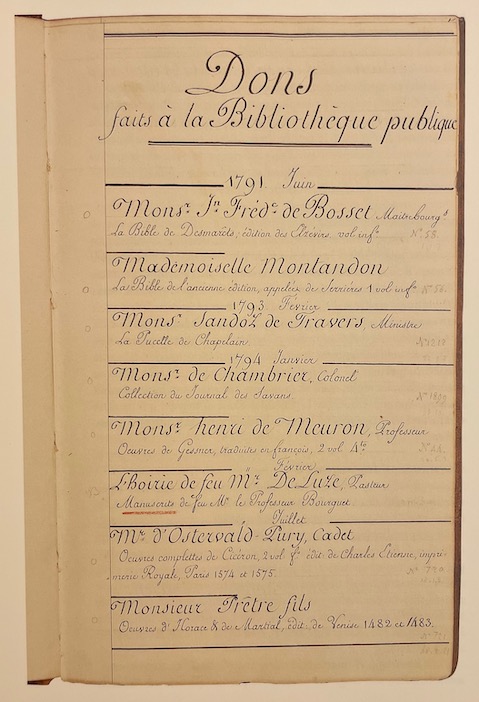 Dons
faits à la Bibliothèque publique
1791 Juin
Monsr. Jn. Frédc. de Bosset Maitrebourgs
La Bible de Desmarêts, édition des Elzévirs, vol info. No 58.
Mademoiselle Montandon
La Bible de l'ancienne édition, appelée de Serrières 1 vol info No 56.
1793 Février
Monsr. Sandoz de Travers, Ministre
La Pucelle de Chapelain.
1794 Janvier
Monsr. de Chambrier, Colonel
Collection du Journal des Savans.
Monsr. henri de Meuron, Professeur
Oeuvres de Gesner, traduites en françois, 2 vol 4to.
Février
L'hoirie de feu Mr. DeLuze, Pasteur
Manuscrits de feu Mr. le Professeur Bourguet
Juillet
Mr. d'Ostervald-Pury, Cadet
Oeuvres complettes de Cicéron, 2 vol fo. édit de Charles Etienne, impri-
merie Royale, Paris 1574 et 1575.
Monsieur Prêtre fils
Oeuvres d'Horace & de Martial, édit. de Venise 1482 et 1483.